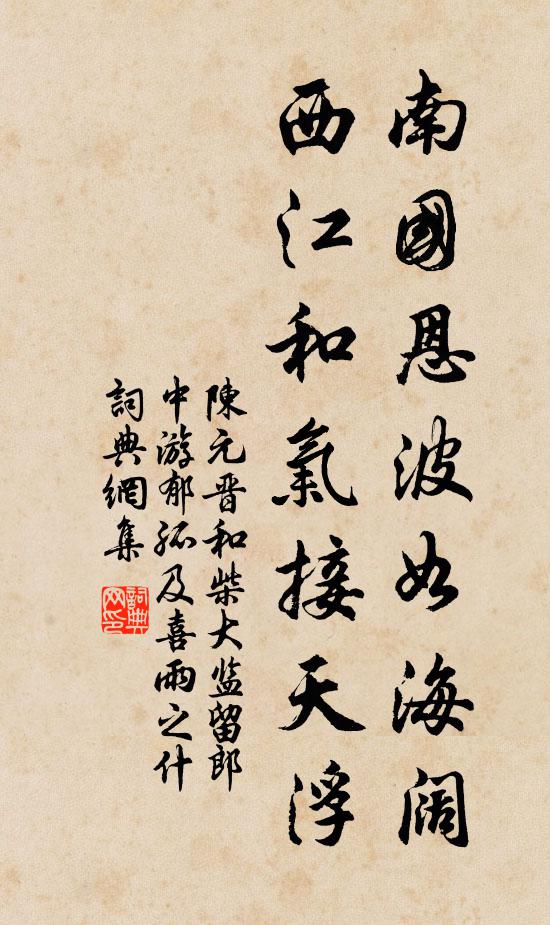 南國恩波如海阔
西江和氣接天浮
陳元晋和柴大监留郎
中游郁孤及喜雨之什
詞典網集
詞典网印